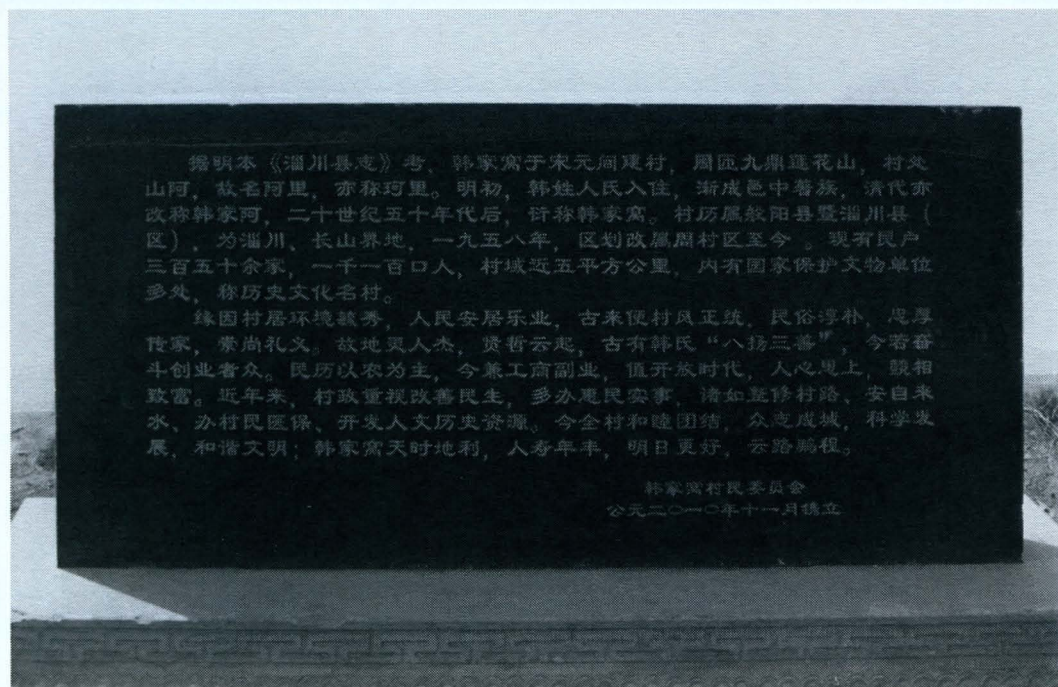 据明本《淄川县志》考，韩家窝于宋元间建村，周匝九鼎莲花山，村处
山阿，故名阿里，亦称珂里。明初，韩姓人氏入住，渐成邑中著族，清代亦
改称韩家阿，二十世纪五十年代后，衍称韩家窝。村历属般阳县暨淄川县（
区），为淄川、长山界地，一九五八年，区划改属周村区至今。现有民户
三百五十余家，一千一百口人，村域近五平方公里，内有国家保护文物单位
多处，称历史文化名村。
缘因村居环境毓秀，人民安居乐业，古来便村风正统，民俗淳朴，忠厚
传家，崇尚礼义。故地灵人杰，贤哲云起，古有韩氏“八扬三善”，今若奋
斗创业者众。民历以农为主，今兼工商副业，值开放时代，人心思上，竞相
致富。近年来，村政重视改善民生，多办惠民实事，诸如整修村路、安自来
水、办村民医保、开发人文历史资源。今全村和睦团结，众志成城，科学发
展，和谐文明；韩家窝天时地利，人寿年丰，明日更好，云路鹏程。
韩家窝村民委员会
公元二〇一〇年十一月镌立